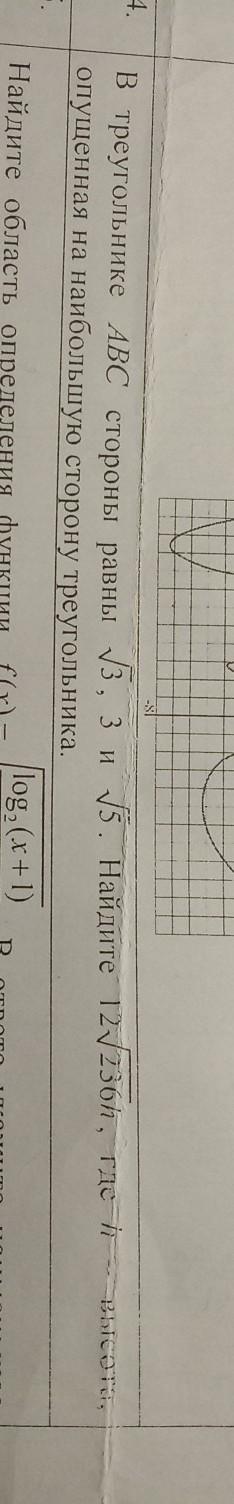 4. В треугольнике ABC стороны равны √3, 3 и √5. Найдите 12√236h, где h – высота,
опущенная на наибольшую сторону треугольника.
Найдите область определения функции f(x) = √log₂(x + 1)